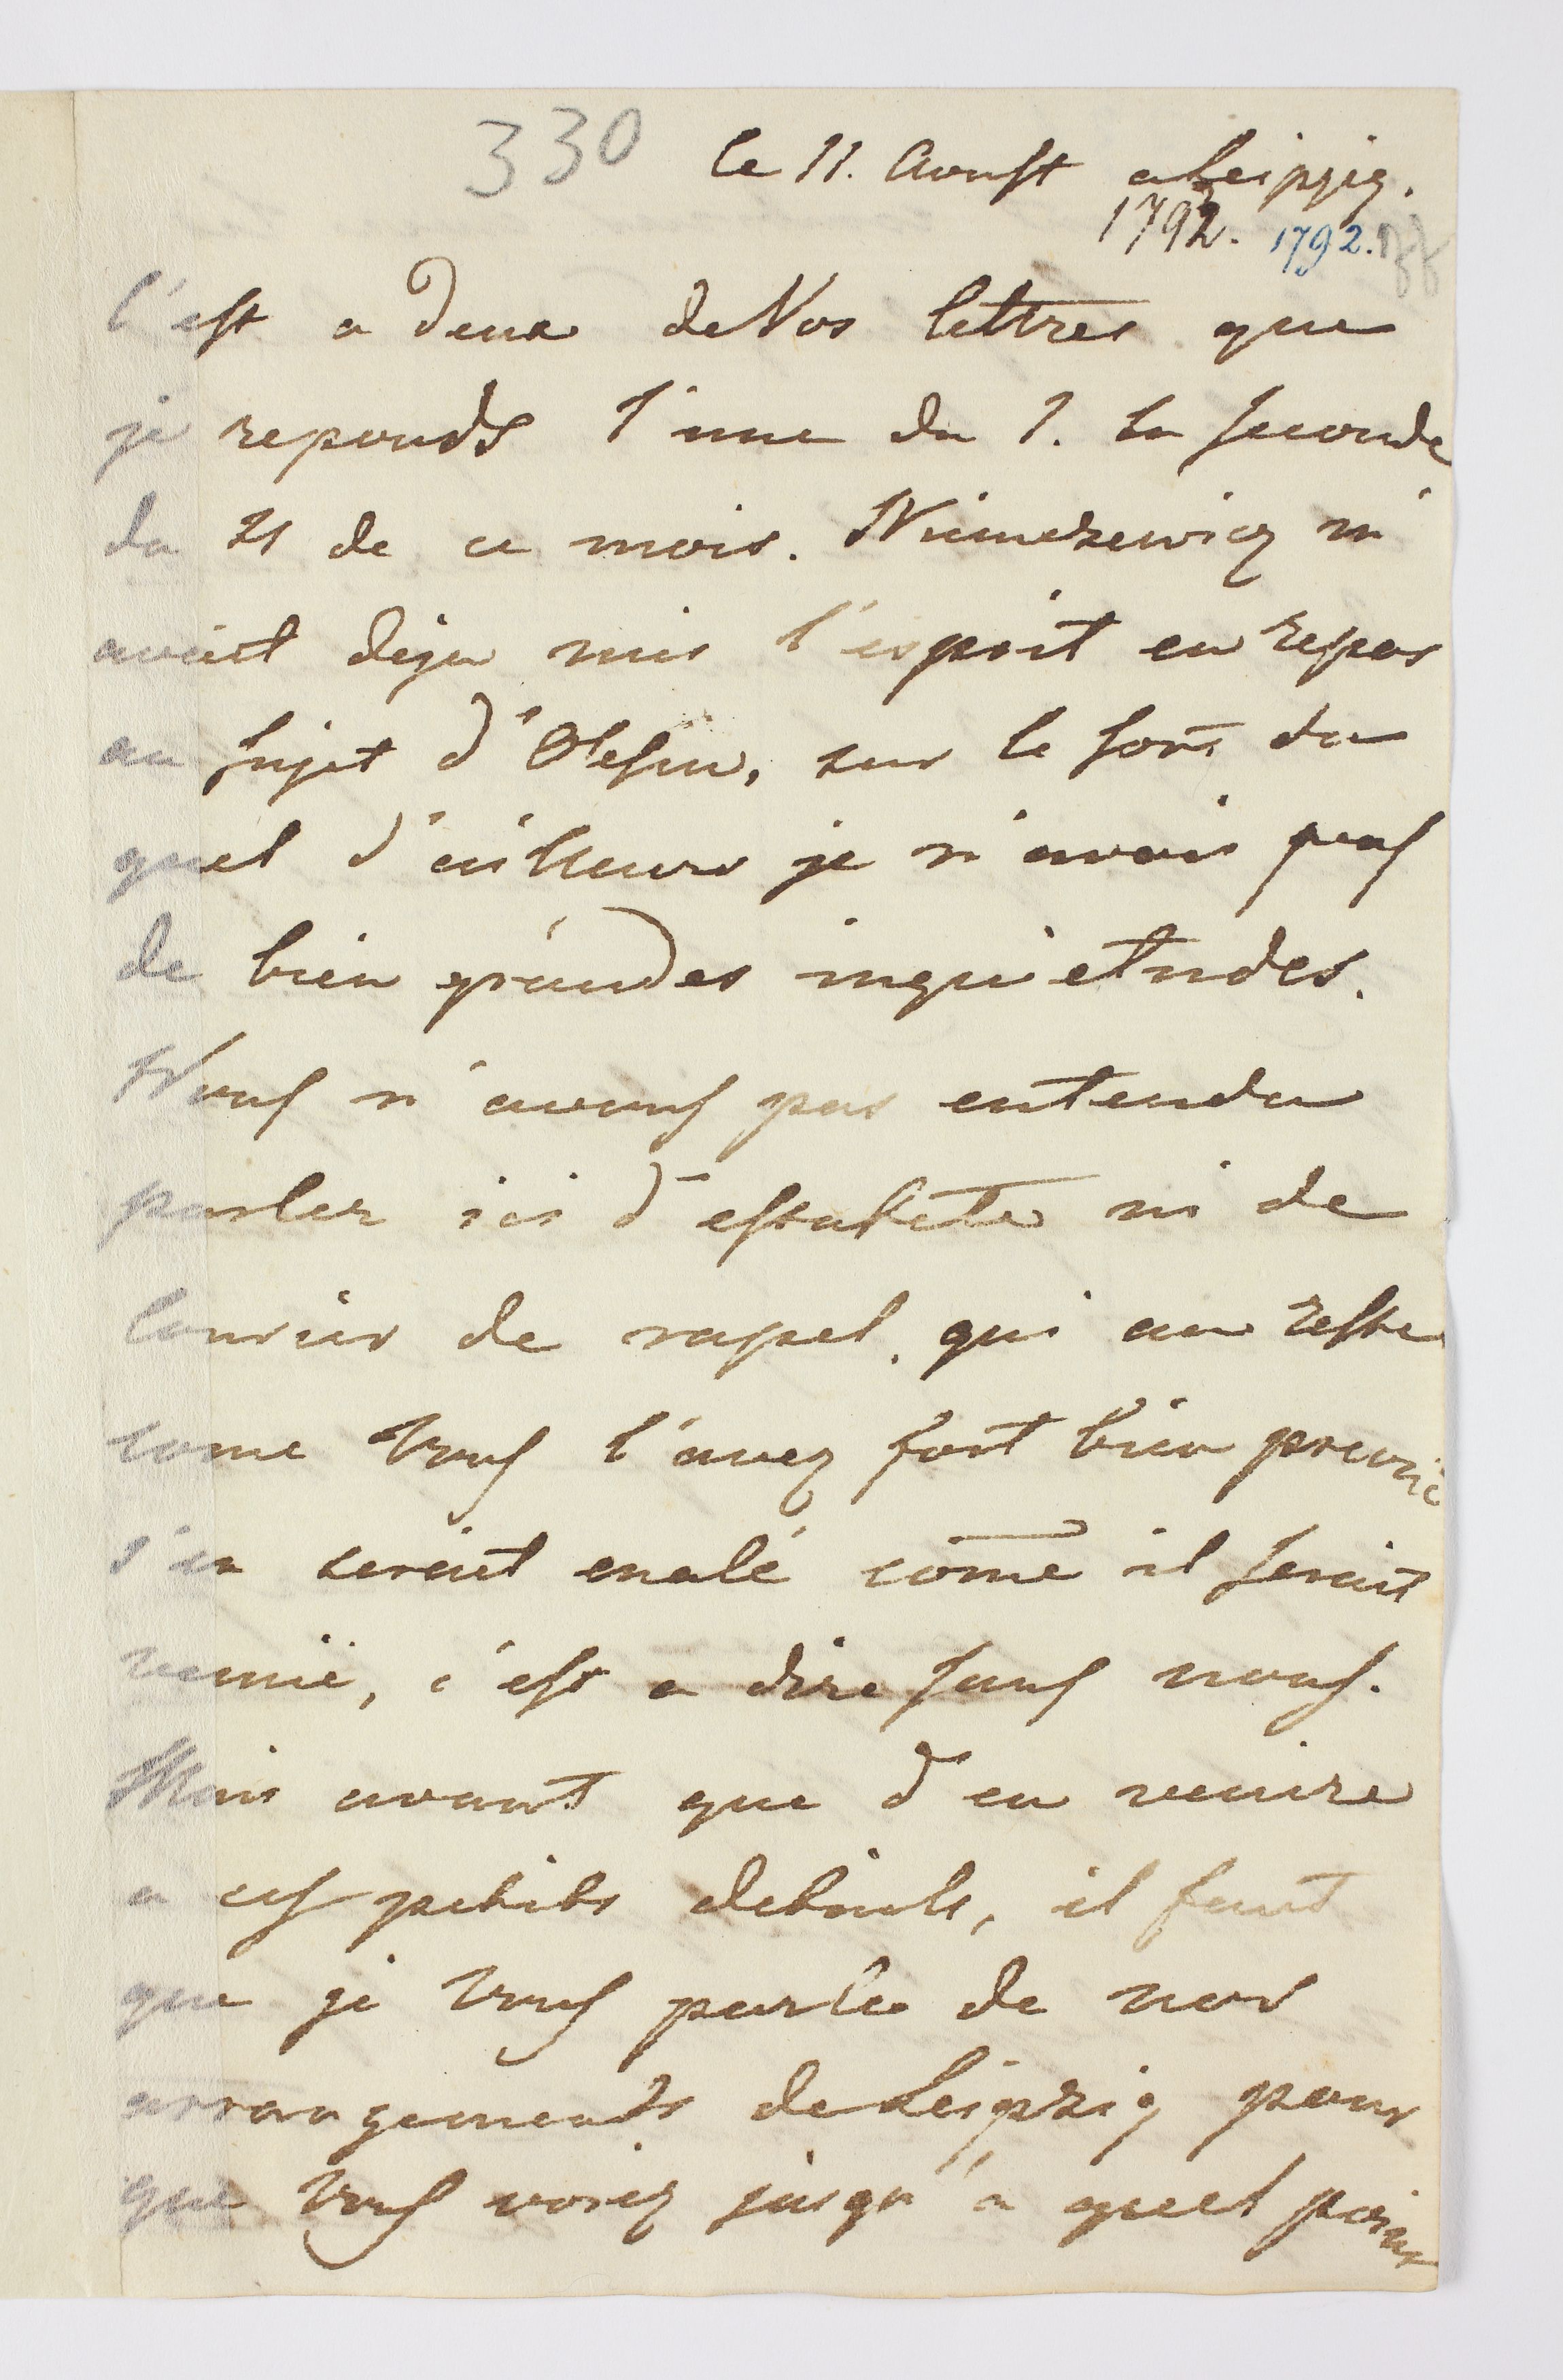 330 le 11. Aoust a Leipzig.
1792. 1792.
C'est a deux de Vos lettres que
je reponds l'une du 1. la seconde
du 4 de ce mois. Niemcewicz m'
avait deja mis l'esprit en repos
au sujet d'Olesin, sur le sort du
quel d'ailleurs je n'avais pas
de bien grandes inquietudes.
Nous n'avons pas entendu
parler ici d'estafete ni de
Courier de rapel, qui au reste
come Vous l'avez fort bien prevu
s'en serait enalé come il serait
venu, c'est a dire sans nous.
Mais avant que d'en venire
a ces petits details, il faut
que je Vous parle de nos
arrangements de Leipzig pour
que Vous voiez jusqu'a quel point